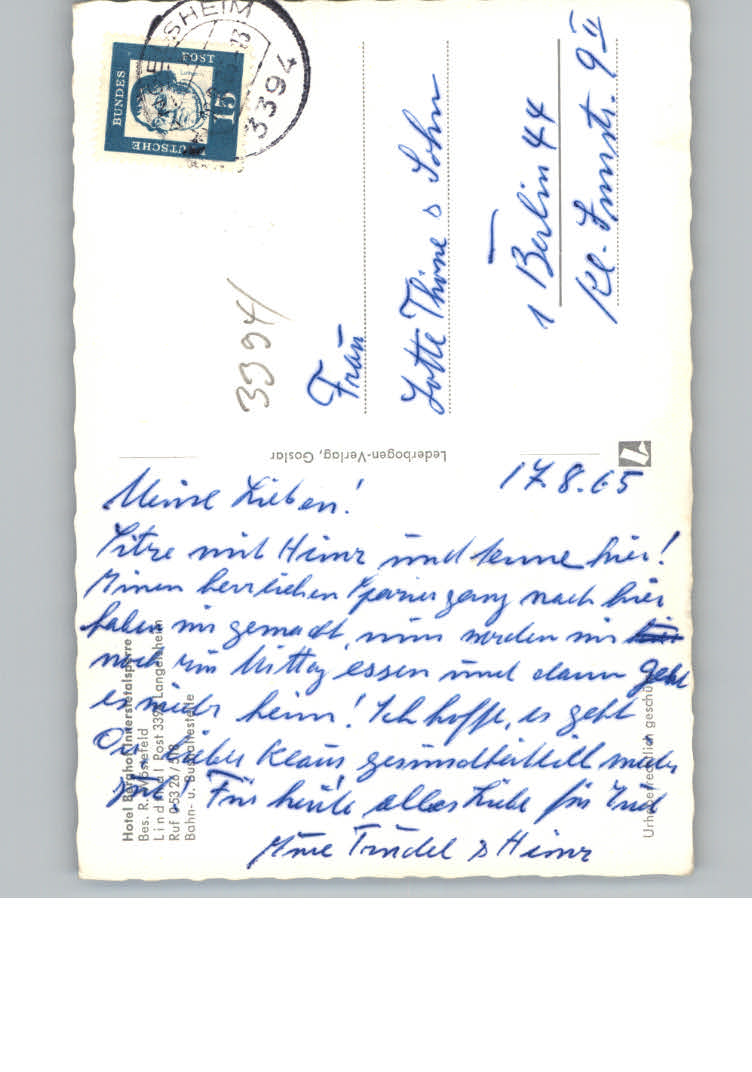 17.8.65
Meine Lieben!
Sitze mit Heinz und hier!
Einen herrlichen Spaziergang nach hier
haben wir gemacht, nun werden wir hier
noch zu Mittag essen und dann geht
es wieder heim! Ich hoffe, es geht
Dir, lieber Klaus gesundheitlich wieder
gut! Für heute alles Liebe für Euch
Eure Trudel & Heinz
Frau
Lotte & Sohn
1 Berlin 44
Kl. 9 II
3394/
Hotel Berghof Innerstetalsperre
Bes. R.
Lindthal Post 3394 Langelsheim
Ruf 05326/
Bahn- u. Bushaltestelle
Lederbogen-Verlag, Goslar
Urheberrechtlich
DEUTSCHE BUNDESPOST
15
3394